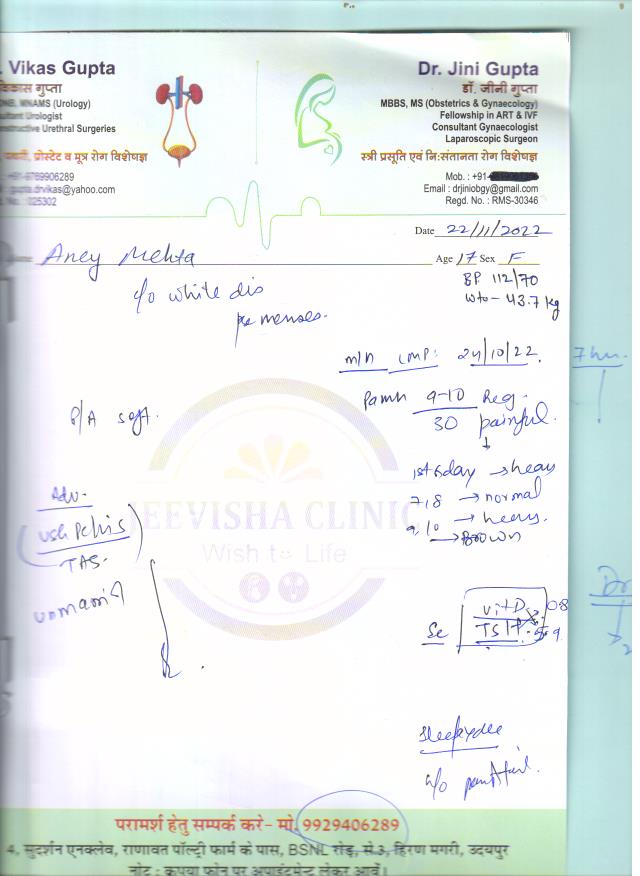 Vikas Gupta
विकास गुप्ता
MNAMS (Urology)
Urologist
Urethral Surgeries
प्रोस्टेट व मूत्र रोग विशेषज्ञ
9789906289
gupta.drvikas@yahoo.com
025302
Dr. Jini Gupta
डॉ. जीनी गुप्ता
MBBS, MS (Obstetrics & Gynaecology)
Fellowship in ART & IVF
Consultant Gynaecologist
Laparoscopic Surgeon
स्त्री प्रसूति एवं नि:संतानता रोग विशेषज्ञ
Mob. : +91-
Email : drjiniobgy@gmail.com
Regd. No. : RMS-30346
Date 22/11/2022
Aney Mehta Age 17 Sex F
BP 112/70
wt - 43.7 kg
c/o white dis
menses.
m/h LMP: 24/10/22.
9-10 Reg.
30 painful.
P/A soft.
1st 6 day → heavy
7,8 → normal
9,10 → heavy.
→ Brown
JEEVISHA CLINIC
Wish to Life
Adv-
USG Pelvis
TAS-
Se Vit D 08
TSH 9
परामर्श हेतु सम्पर्क करे- मो. 9929406289
4, सुदर्शन एनक्लेव, राणावत पॉल्ट्री फार्म के पास, BSNL रोड़, से.3, हिरण मगरी, उदयपुर
नोट : कृपया फोन पर अपाइंटमेन्ट लेकर आवें।